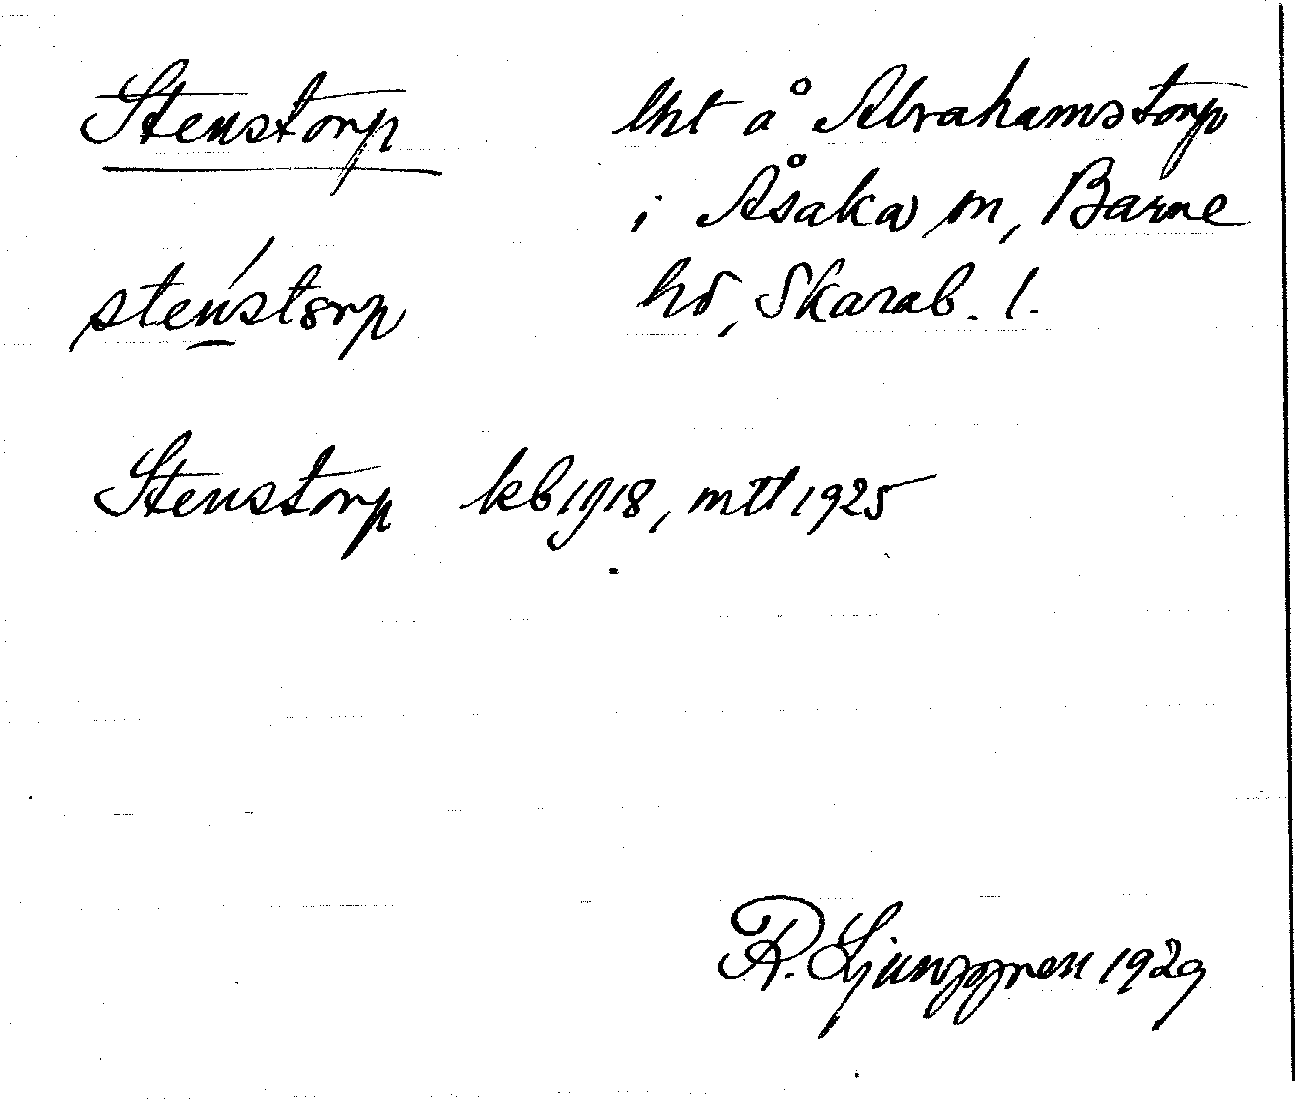 Stenstorp lht å Abrahamstorp
i Åsaka sn, Barne
sten´storp hd, Skarab. l.
Stenstorp kb 1918, mtl 1925
R. Ljunggren 1929